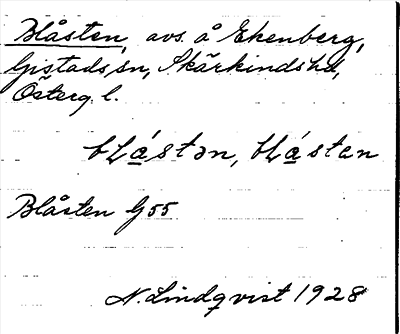 Blåsten, avs. å Ekenberg,
Gistads sn, Skärkinds hd,
Österg. l.
bɫástən, bɫástan
Blåsten G55
N. Lindqvist 1928